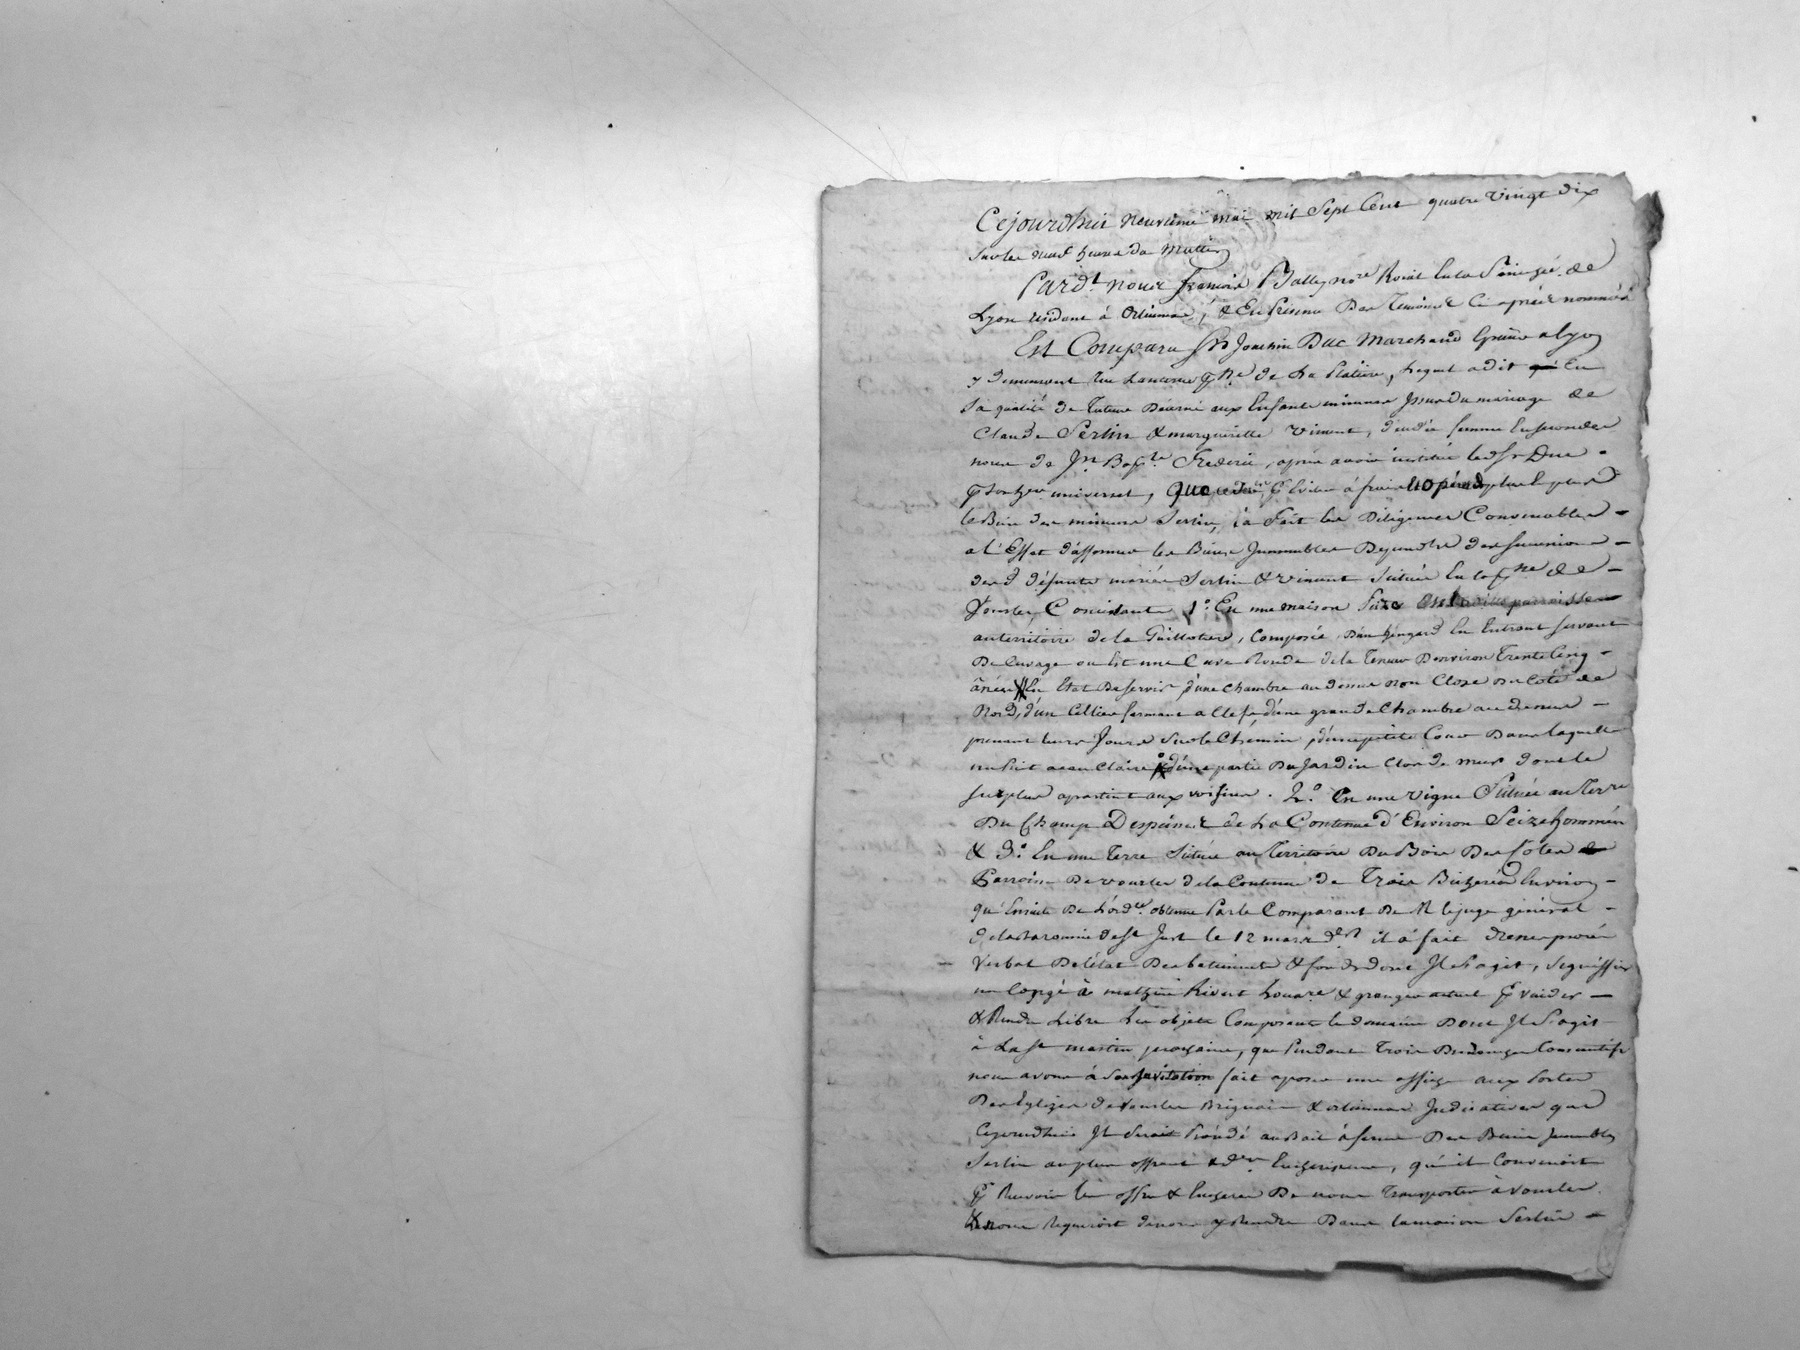 Cejourdhui neuvieme mai mil Sept Cent quatre vingt dix
Sur les neuf heures du Matin
Pard.t nous françois Bally no.re Roial en la Sénéch.ée de
Lyon résidant à Orliennas, & En Présence Des Temoins Ci après nommés
Est Comparu Sr Joachim Duc Marchand Epicier a lyon
y demeurant Rue Lanterne p.sse de La Platière, Lequel a dit En
Sa qualité de Tuteur Décerné aux Enfants mineurs Issus du mariage de
Claude Serlin & marguerite Vincent, femme En secondes
noces de Jn Bap.te Frederic, après avoir institué led. Sr Duc
p.r Son h.er universel, Que p.r Eviter à frais
le Bien des mineurs Serlin, il a Fait les Diligences Convenables
a l'Effet d'affermer les Biens Immeubles Dependts des successions
desd. défunts mariés Serlin & Vincent Situés En la p.sse de
Vourles, Consistants 1.° En une maison Size
au territoire de la Guillotière, Composée D'un hengard En Entrant servant
De Cuvage ou Est une Cuve Ronde de la Teneur Denviron Trente Cinq
ânées En Etat De servir, d'une Chambre au dessus non Close du Coté de
Nord, d'un Cellier fermant a Clef, d'une grande Chambre au dessus
prenant leurs Jours Sur le Chemin, d'une petite Cour Dans laquelle
un Puit a eau Claire & d'une partie Du Jardin Clos de murs dont le
surplus apartient aux voisins. 2.° En une Vigne Située au Terre
Du Champ De la Contenue d'Environ Seize hommées
& 3.° En une Terre Située au Territoire Du Bois Des Côtes
Parroisse De vourles de la Contenue de Trois Bicherées Environ
qu'Ensuite De L'ord.ce obtenue Par le Comparant De M. le juge général
de la Baronnie de St Just le 12 mars d.er il a fait dresser procès
Verbal De l'état Des batiments & fonds dont Il S'agit, signiffier
un Congé à mathieu Rivert Louare & granger actuel p.r vuider
& Rendre Libre Les objets Composant le domaine Dont Il S'agit
à La St martin prochaine, que Pendant Trois Dimanches Consecutifs
nous avons à Son Invitation fait aposer une affiche aux Portes
Des Eglizes de Vourles Brignais & orliennas Indicatives que
Cejourdhuis Il Serait Procédé au Bail à ferme Des Biens Immeubles
Serlin au plus offrant & d.er Encherisseur, qu'il Convenoit
p.r Recevoir les offres & Encheres De nous Transporter à Vourles
& nous Requeroit de nous y Rendre Dans la maison Serlin